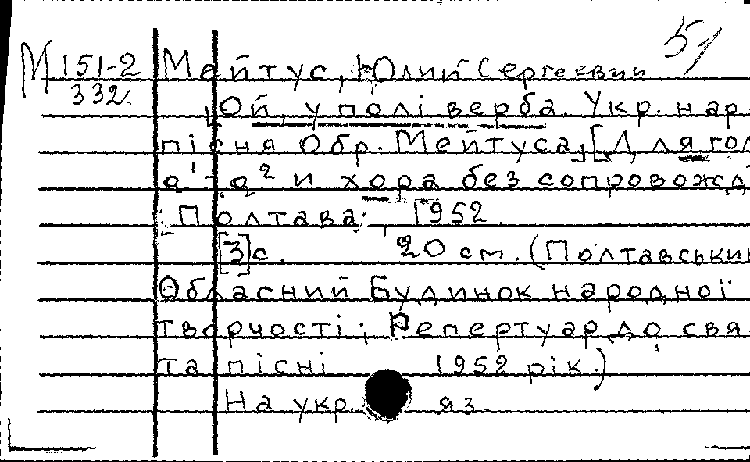 51
М 151-2 Мейтус, Юлий Сергеевич
332.
Ой, у полі верба. Укр. нар
пісня Обр. Мейтуса, [Для гол
а¹-а² и хора без сопровожд
Полтава. 1952.
[3]с. 20 см. (Полтавський
Обласний Будинок народної
творчості; Репертуар до свя
та пісні 1952 рік.)
На укр. яз.